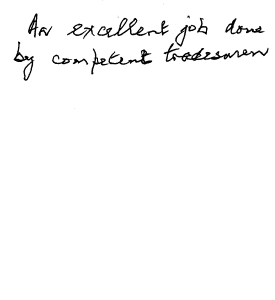 An excellent job done
by competent tradesmen